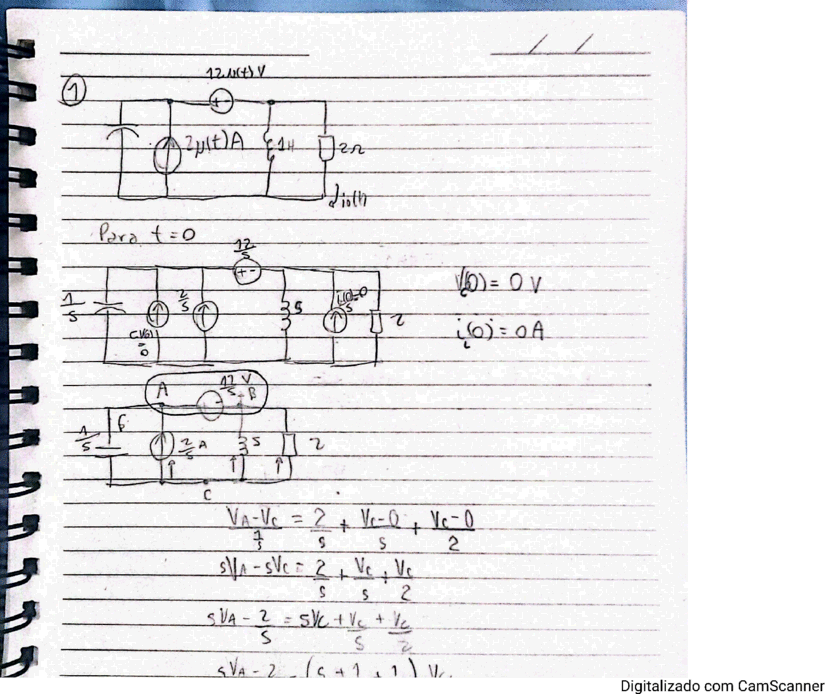 12μ(t) V
1
2μ(t) A
1H
2Ω
io(t)
Para t = 0
12/s
1/s
CV(0) = 0
2/s
s
i(0)=0/s
2
Vc(0) = 0 V
iL(0) = 0 A
A 12/s V B
1/s
2/s A
s
2
C
(VA - VC)/(1/s) = 2/s + (VC - 0)/s + (VC - 0)/2
sVA - sVC = 2/s + VC/s + VC/2
sVA - 2/s = sVC + VC/s + VC/2
Digitalizado com CamScanner